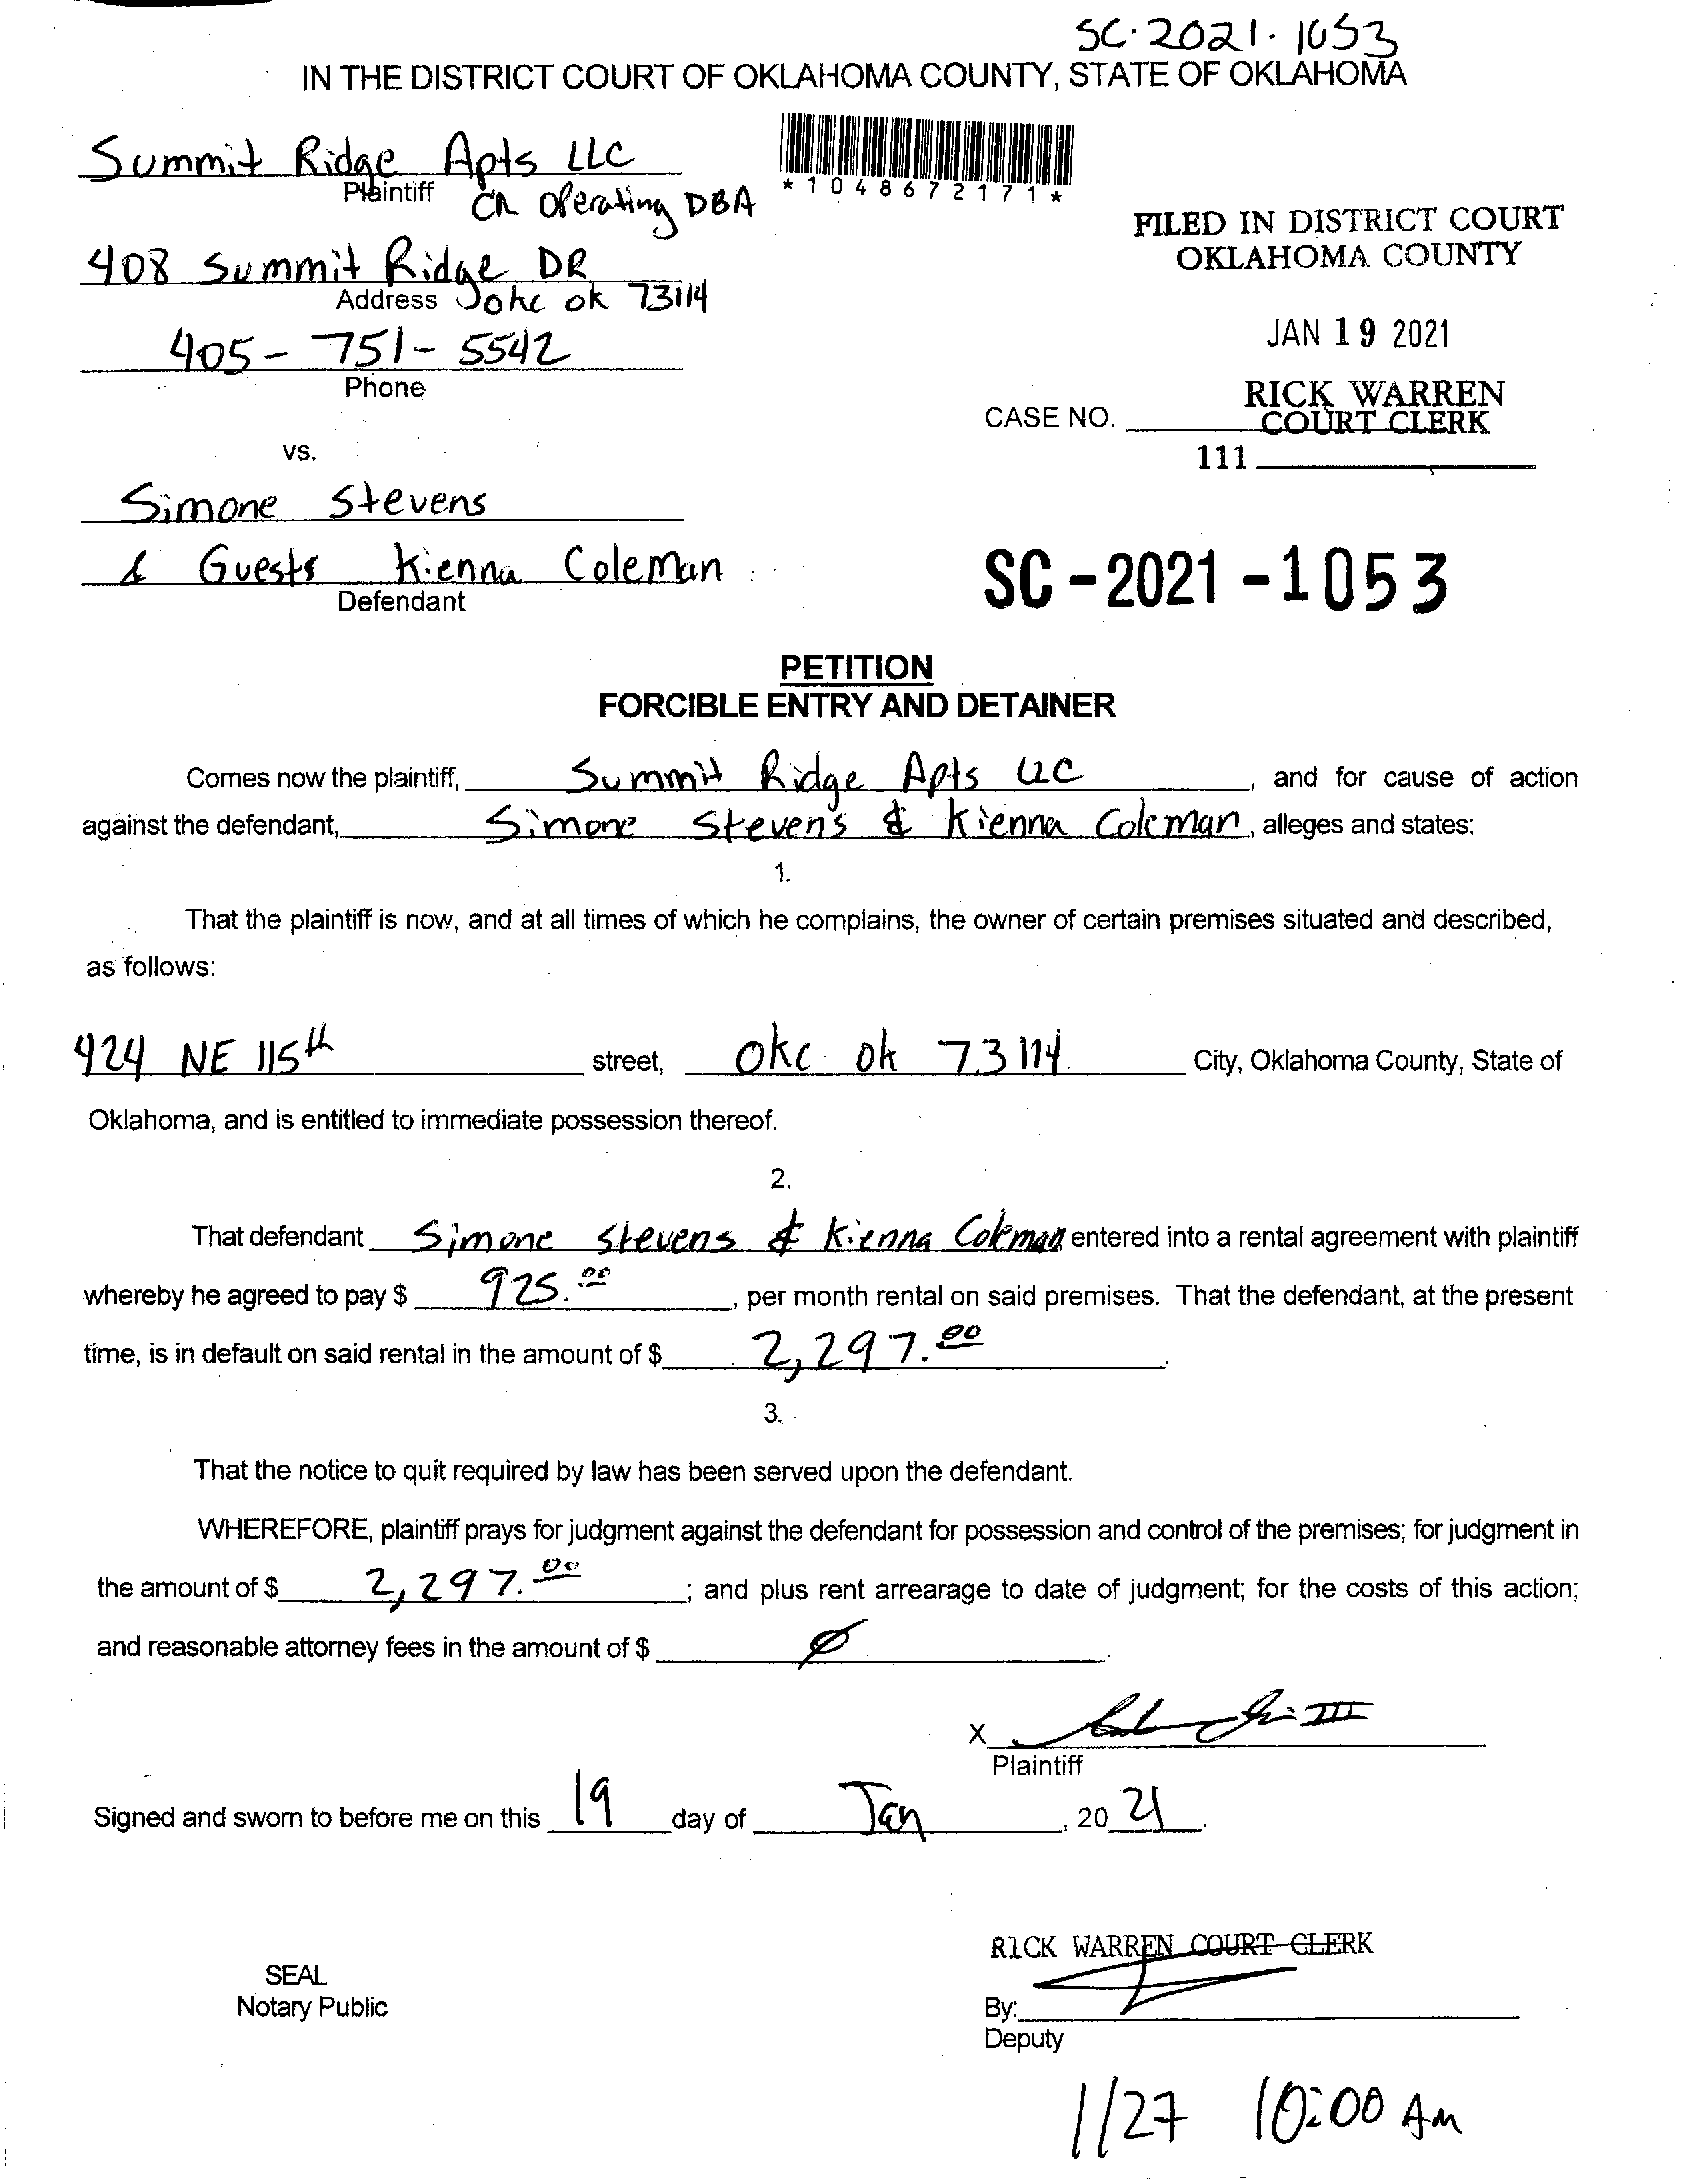 SC-2021-1053
IN THE DISTRICT COURT OF OKLAHOMA COUNTY, STATE OF OKLAHOMA
Summit Ridge Apts LLC
Plaintiff
CR Operating DBA
*1048672171*
408 Summit Ridge DR
Address
okc ok 73114
405-751-5542
Phone
FILED IN DISTRICT COURT
OKLAHOMA COUNTY
JAN 19 2021
RICK WARREN
COURT CLERK
CASE NO.
111
vs.
Simone Stevens
& Guests Kienna Coleman
Defendant
SC-2021-1053
PETITION
FORCIBLE ENTRY AND DETAINER
Comes now the plaintiff, Summit Ridge Apts LLC, and for cause of action
against the defendant, Simone Stevens & Kienna Coleman, alleges and states:
1.
That the plaintiff is now, and at all times of which he complains, the owner of certain premises situated and described,
as follows:
424 NE 115th street, okc ok 73114 City, Oklahoma County, State of
Oklahoma, and is entitled to immediate possession thereof.
2.
That defendant Simone Stevens & Kienna Coleman entered into a rental agreement with plaintiff
whereby he agreed to pay $ 925.00, per month rental on said premises. That the defendant, at the present
time, is in default on said rental in the amount of $ 2,297.00.
3.
That the notice to quit required by law has been served upon the defendant.
WHEREFORE, plaintiff prays for judgment against the defendant for possession and control of the premises; for judgment in
the amount of $ 2,297.00; and plus rent arrearage to date of judgment; for the costs of this action;
and reasonable attorney fees in the amount of $ ∅.
X III
Plaintiff
Signed and sworn to before me on this 19 day of Jan, 20 21.
RICK WARREN COURT CLERK
SEAL
Notary Public
By:
Deputy
1/27 10:00 AM